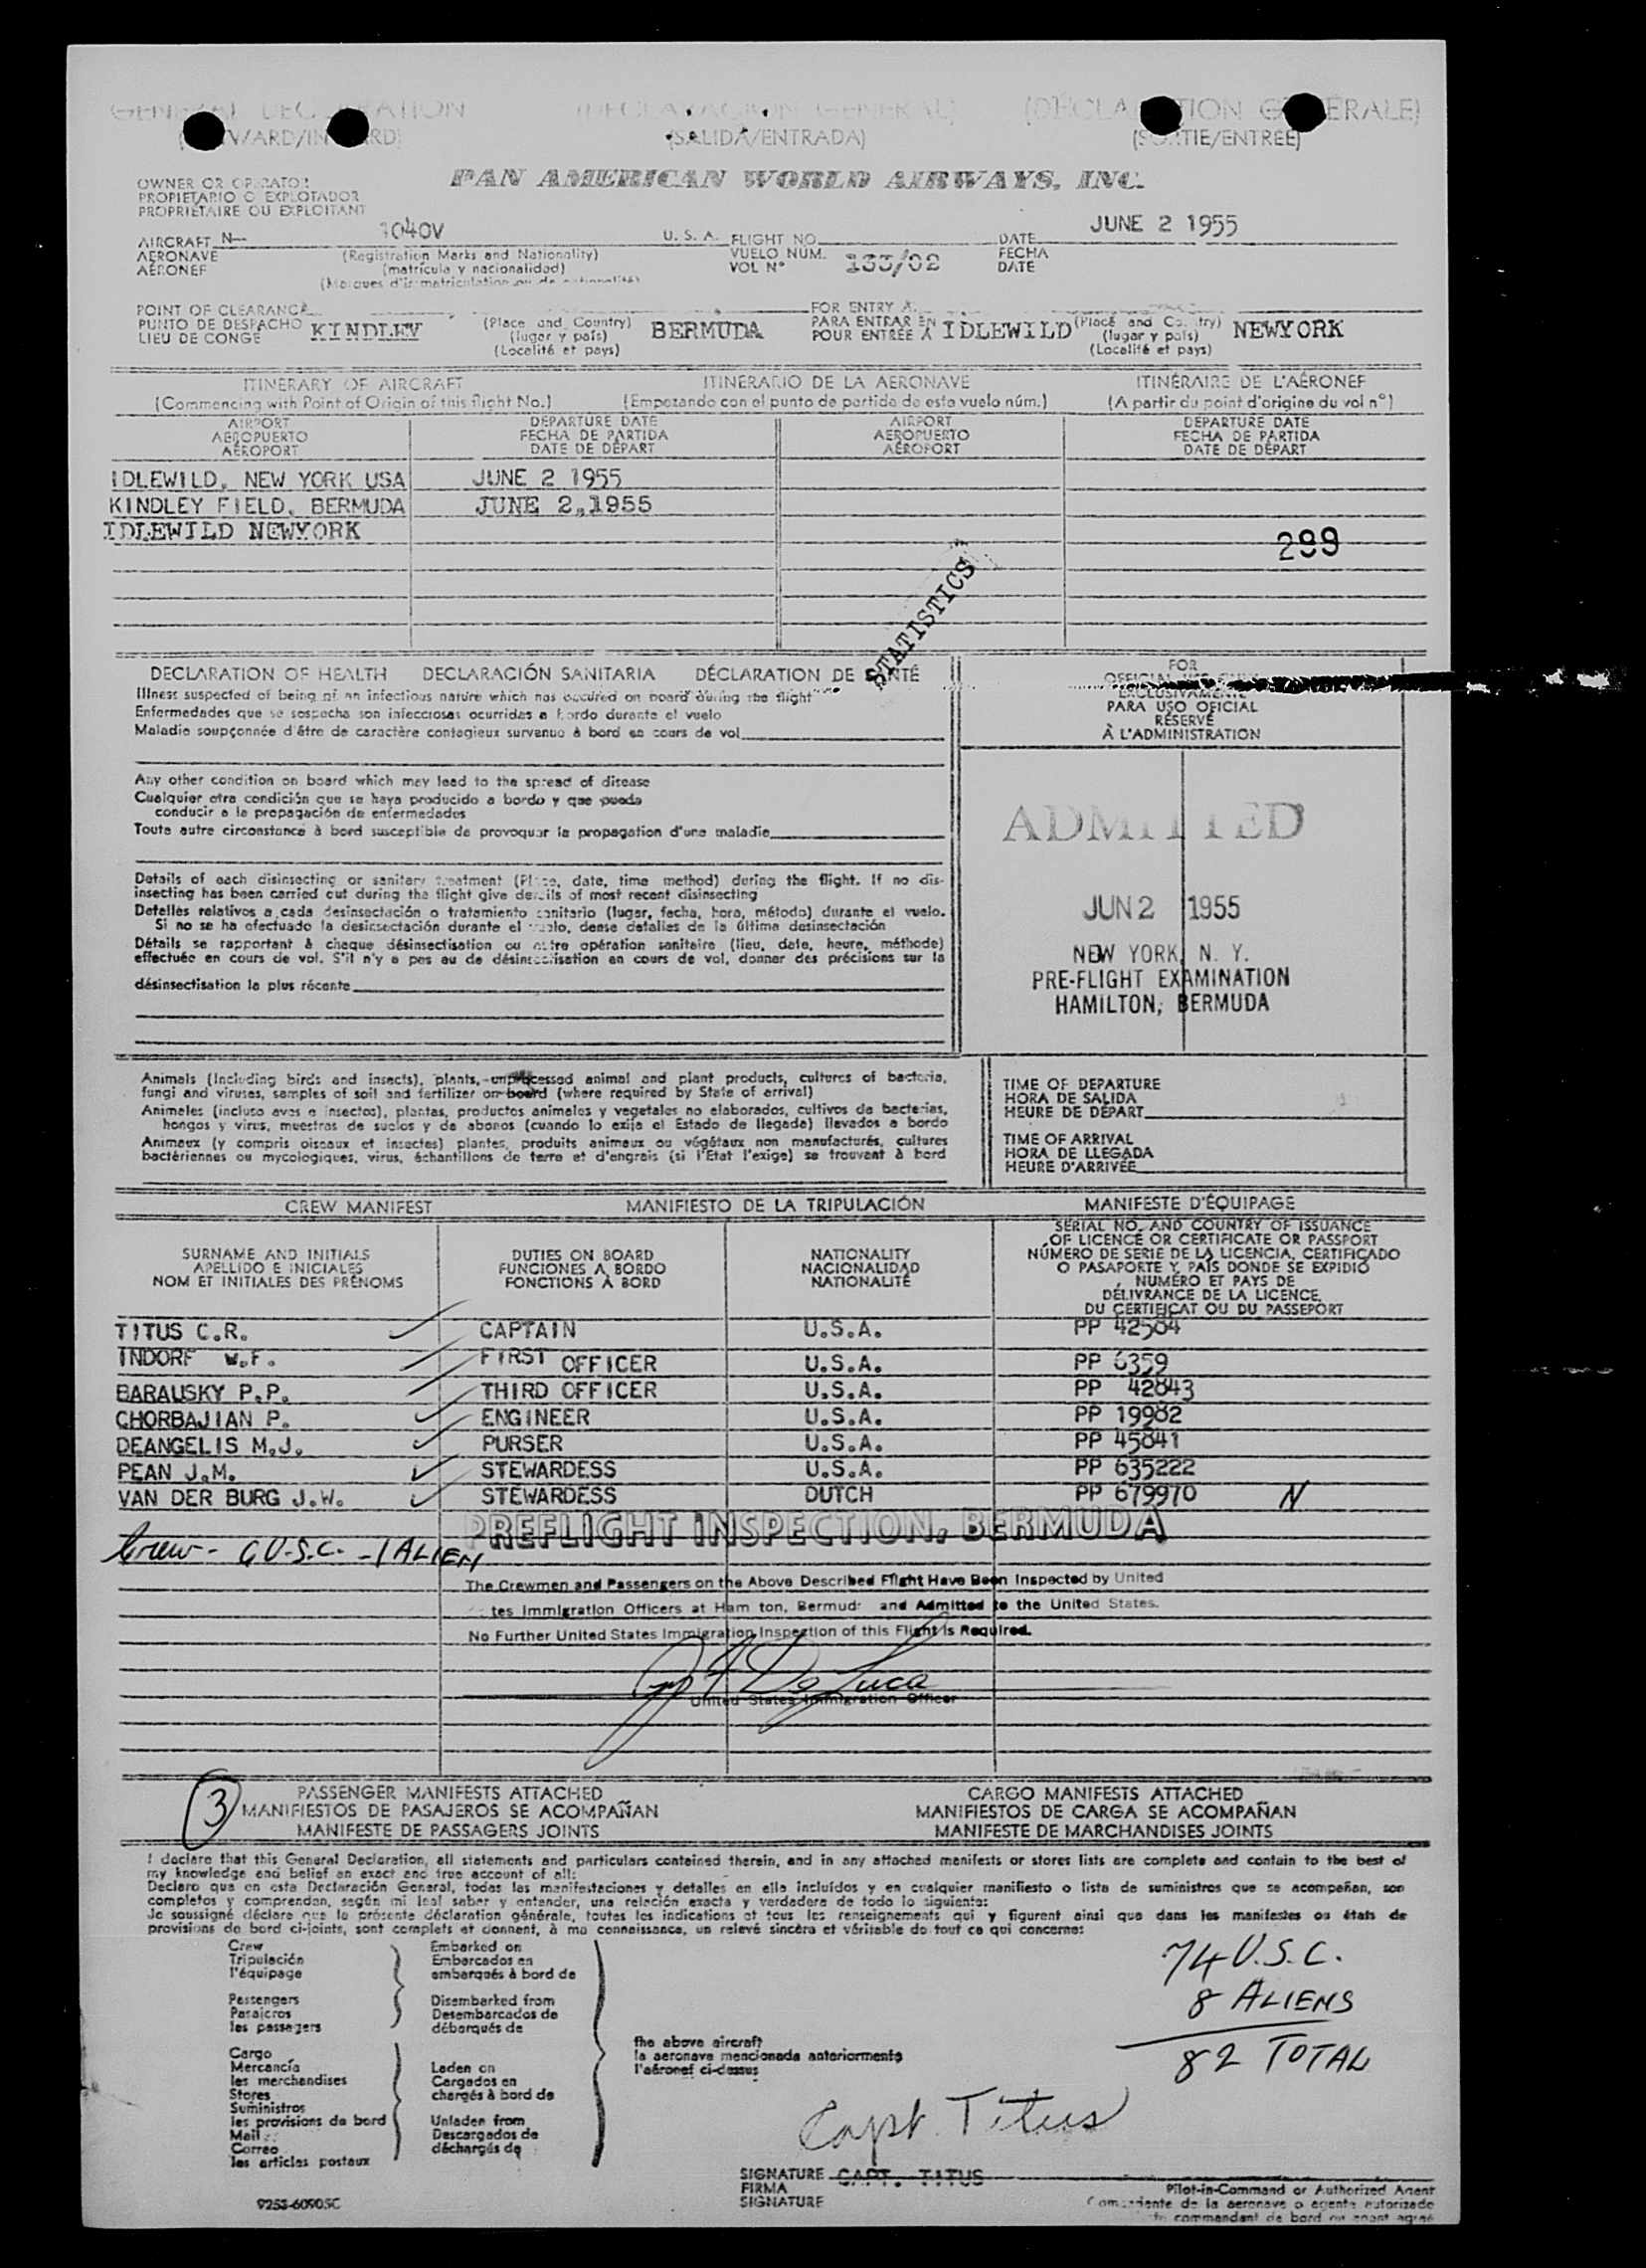 GENERAL DECLARATION (DECLARACIÓN GENERAL) (DÉCLARATION GÉNÉRALE)
(SALIDA/ENTRADA) (SORTIE/ENTRÉE)
PAN AMERICAN WORLD AIRWAYS, INC.
OWNER OR OPERATOR
PROPIETARIO O EXPLOTADOR
PROPRIÉTAIRE OU EXPLOITANT
AIRCRAFT N— 1040V U. S. A. FLIGHT NO. DATE JUNE 2 1955
AERONAVE (Registration Marks and Nationality) VUELO NÚM. 133/02 FECHA
AÉRONEF (matrícula y nacionalidad) VOL Nº DATE
POINT OF CLEARANCE FOR ENTRY AT
PUNTO DE DESPACHO KINDLEY (Place and Country) BERMUDA PARA ENTRAR EN IDLEWILD (Place and Country) NEWYORK
LIEU DE CONGE (lugar y país) POUR ENTRÉE À (lugar y país)
(Localité et pays) (Localité et pays)
ITINERARY OF AIRCRAFT ITINERARIO DE LA AERONAVE ITINÉRAIRE DE L'AÉRONEF
(Commencing with Point of Origin of this flight No.) (Empezando con el punto de partida de este vuelo núm.) (A partir du point d'origine du vol nº)
AIRPORT DEPARTURE DATE AIRPORT DEPARTURE DATE
AEROPUERTO FECHA DE PARTIDA AEROPUERTO FECHA DE PARTIDA
AÉROPORT DATE DE DÉPART AÉROPORT DATE DE DÉPART
IDLEWILD, NEW YORK USA JUNE 2 1955
KINDLEY FIELD, BERMUDA JUNE 2,1955
IDLEWILD NEWYORK
299
STATISTICS
DECLARATION OF HEALTH DECLARACIÓN SANITARIA DÉCLARATION DE SANTÉ
Illness suspected of being of an infectious nature which has occured on board during the flight
Enfermedades que se sospecha son infecciosas ocurridas a bordo durante el vuelo
Maladie soupçonnée d'être de caractère contagieux survenue à bord en cours de vol
FOR
EXCLUSIVAMENTE
PARA USO OFICIAL
RÉSERVÉ
À L'ADMINISTRATION
Any other condition on board which may lead to the spread of disease
Cualquier otra condición que se haya producido a bordo y que pueda
conducir a la propagación de enfermedades
Toute autre circonstance à bord susceptible de provoquer la propagation d'une maladie
ADMITTED
JUN 2 1955
NEW YORK, N. Y.
PRE-FLIGHT EXAMINATION
HAMILTON, BERMUDA
Details of each disinsecting or sanitary treatment (Place, date, time method) during the flight. If no dis-
insecting has been carried out during the flight give details of most recent disinsecting
Detalles relativos a cada desinsectación o tratamiento sanitario (lugar, fecha, hora, método) durante el vuelo.
Si no se ha efectuado la desinsectación durante el vuelo, dense detalles de la última desinsectación
Détails se rapportant à chaque désinsectisation ou autre opération sanitaire (lieu, date, heure, méthode)
effectuée en cours de vol. S'il n'y a pas eu de désinsectisation en cours de vol, donner des précisions sur la
désinsectisation la plus récente
Animals (Including birds and insects), plants, unprocessed animal and plant products, cultures of bacteria,
fungi and viruses, samples of soil and fertilizer on board (where required by State of arrival)
Animales (incluso aves e insectos), plantas, productos animales y vegetales no elaborados, cultivos de bacterias,
hongos y virus, muestras de suelos y de abonos (cuando lo exija el Estado de llegada) llevados a bordo
Animaux (y compris oiseaux et insectes) plantes, produits animaux ou végétaux non manufacturés, cultures
bactériennes ou mycologiques, virus, échantillons de terre et d'engrais (si l'Etat l'exige) se trouvant à bord
TIME OF DEPARTURE
HORA DE SALIDA
HEURE DE DÉPART
TIME OF ARRIVAL
HORA DE LLEGADA
HEURE D'ARRIVÉE
CREW MANIFEST MANIFIESTO DE LA TRIPULACIÓN MANIFESTE D'ÉQUIPAGE
SURNAME AND INITIALS
APELLIDO E INICIALES
NOM ET INITIALES DES PRÉNOMS
DUTIES ON BOARD
FUNCIONES A BORDO
FONCTIONS À BORD
NATIONALITY
NACIONALIDAD
NATIONALITÉ
SERIAL NO. AND COUNTRY OF ISSUANCE
OF LICENCE OR CERTIFICATE OR PASSPORT
NÚMERO DE SERIE DE LA LICENCIA, CERTIFICADO
O PASAPORTE Y PAÍS DONDE SE EXPIDIÓ
NUMÉRO ET PAYS DE
DÉLIVRANCE DE LA LICENCE,
DU CERTIFICAT OU DU PASSEPORT
TITUS C.R. CAPTAIN U.S.A. PP 42584
INDORF W.F. FIRST OFFICER U.S.A. PP 6359
BARAUSKY P.P. THIRD OFFICER U.S.A. PP 42843
CHORBAJIAN P. ENGINEER U.S.A. PP 19982
DEANGELIS M.J. PURSER U.S.A. PP 45841
PEAN J.M. STEWARDESS U.S.A. PP 635222
VAN DER BURG J.W. STEWARDESS DUTCH PP 679970 N
PREFLIGHT INSPECTION, BERMUDA
Crew - 6 U.S.C. - 1 ALIEN
The Crewmen and Passengers on the Above Described Flight Have Been Inspected by United
tes Immigration Officers at Ham ton, Bermud and Admitted to the United States.
No Further United States Immigration Inspection of this Flight is Required.
De Luca
United States Immigration Officer
3
PASSENGER MANIFESTS ATTACHED CARGO MANIFESTS ATTACHED
MANIFIESTOS DE PASAJEROS SE ACOMPAÑAN MANIFIESTOS DE CARGA SE ACOMPAÑAN
MANIFESTE DE PASSAGERS JOINTS MANIFESTE DE MARCHANDISES JOINTS
I declare that this General Declaration, all statements and particulars contained therein, and in any attached manifests or stores lists are complete and contain to the best of
my knowledge and belief an exact and true account of all:
Declaro que en esta Declaración General, todas las manifestaciones y detalles en ella incluídos y en cualquier manifiesto o lista de suministros que se acompañan, son
completos y comprenden, según mi leal saber y entender, una relación exacta y verdadera de todo lo siguiente:
Je soussigné déclare que la présente déclaration générale, toutes les indications et tous les renseignements qui y figurent ainsi que dans les manifestes ou états de
provisions de bord ci-joints, sont complets et donnent, à ma connaissance, un relevé sincère et véritable de tout ce qui concerne:
Crew Embarked on
Tripulación Embarcados en
l'équipage embarqués à bord de
Passengers Disembarked from
Pasajeros Desembarcados de
les passagers débarqués de
74 U.S.C.
8 ALIENS
82 TOTAL
the above aircraft
la aeronave mencionada anteriormente
l'aéronef ci-dessus
Cargo
Mercancía Laden on
les merchandises Cargados en
Stores chargés à bord de
Suministros
les provisions de bord Unladen from
Mail Descargados de
Correo déchargés de
les articles postaux
Capt. Titus
SIGNATURE CAPT. TITUS
FIRMA
SIGNATURE
Pilot-in-Command or Authorized Agent
de la aeronave o agente autorizado
commandant de bord ou agent agréé
9253-60905C